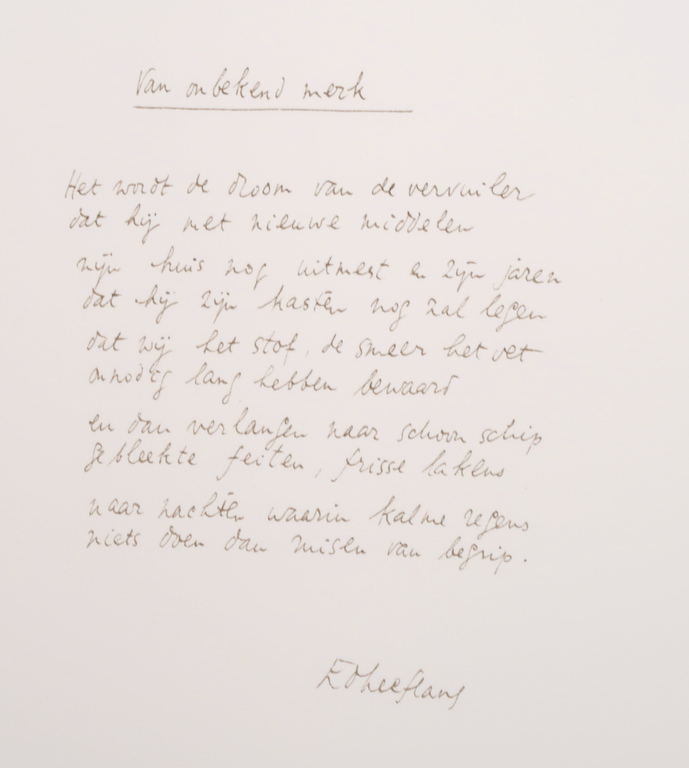 Van onbekend merk
Het wordt de droom van de vervuiler
dat hij met nieuwe middelen
mijn huis nog uitmest en zijn jaren
dat hij zijn kasten nog zal legen
dat wij het stof, de smeer het vet
onnodig lang hebben bewaard
en dan verlangen naar schoon schip
gebleekte feiten, frisse lakens
naar nachten waarin kalme regens
niets doen dan ruisen van begrip.
Ed Leeflang